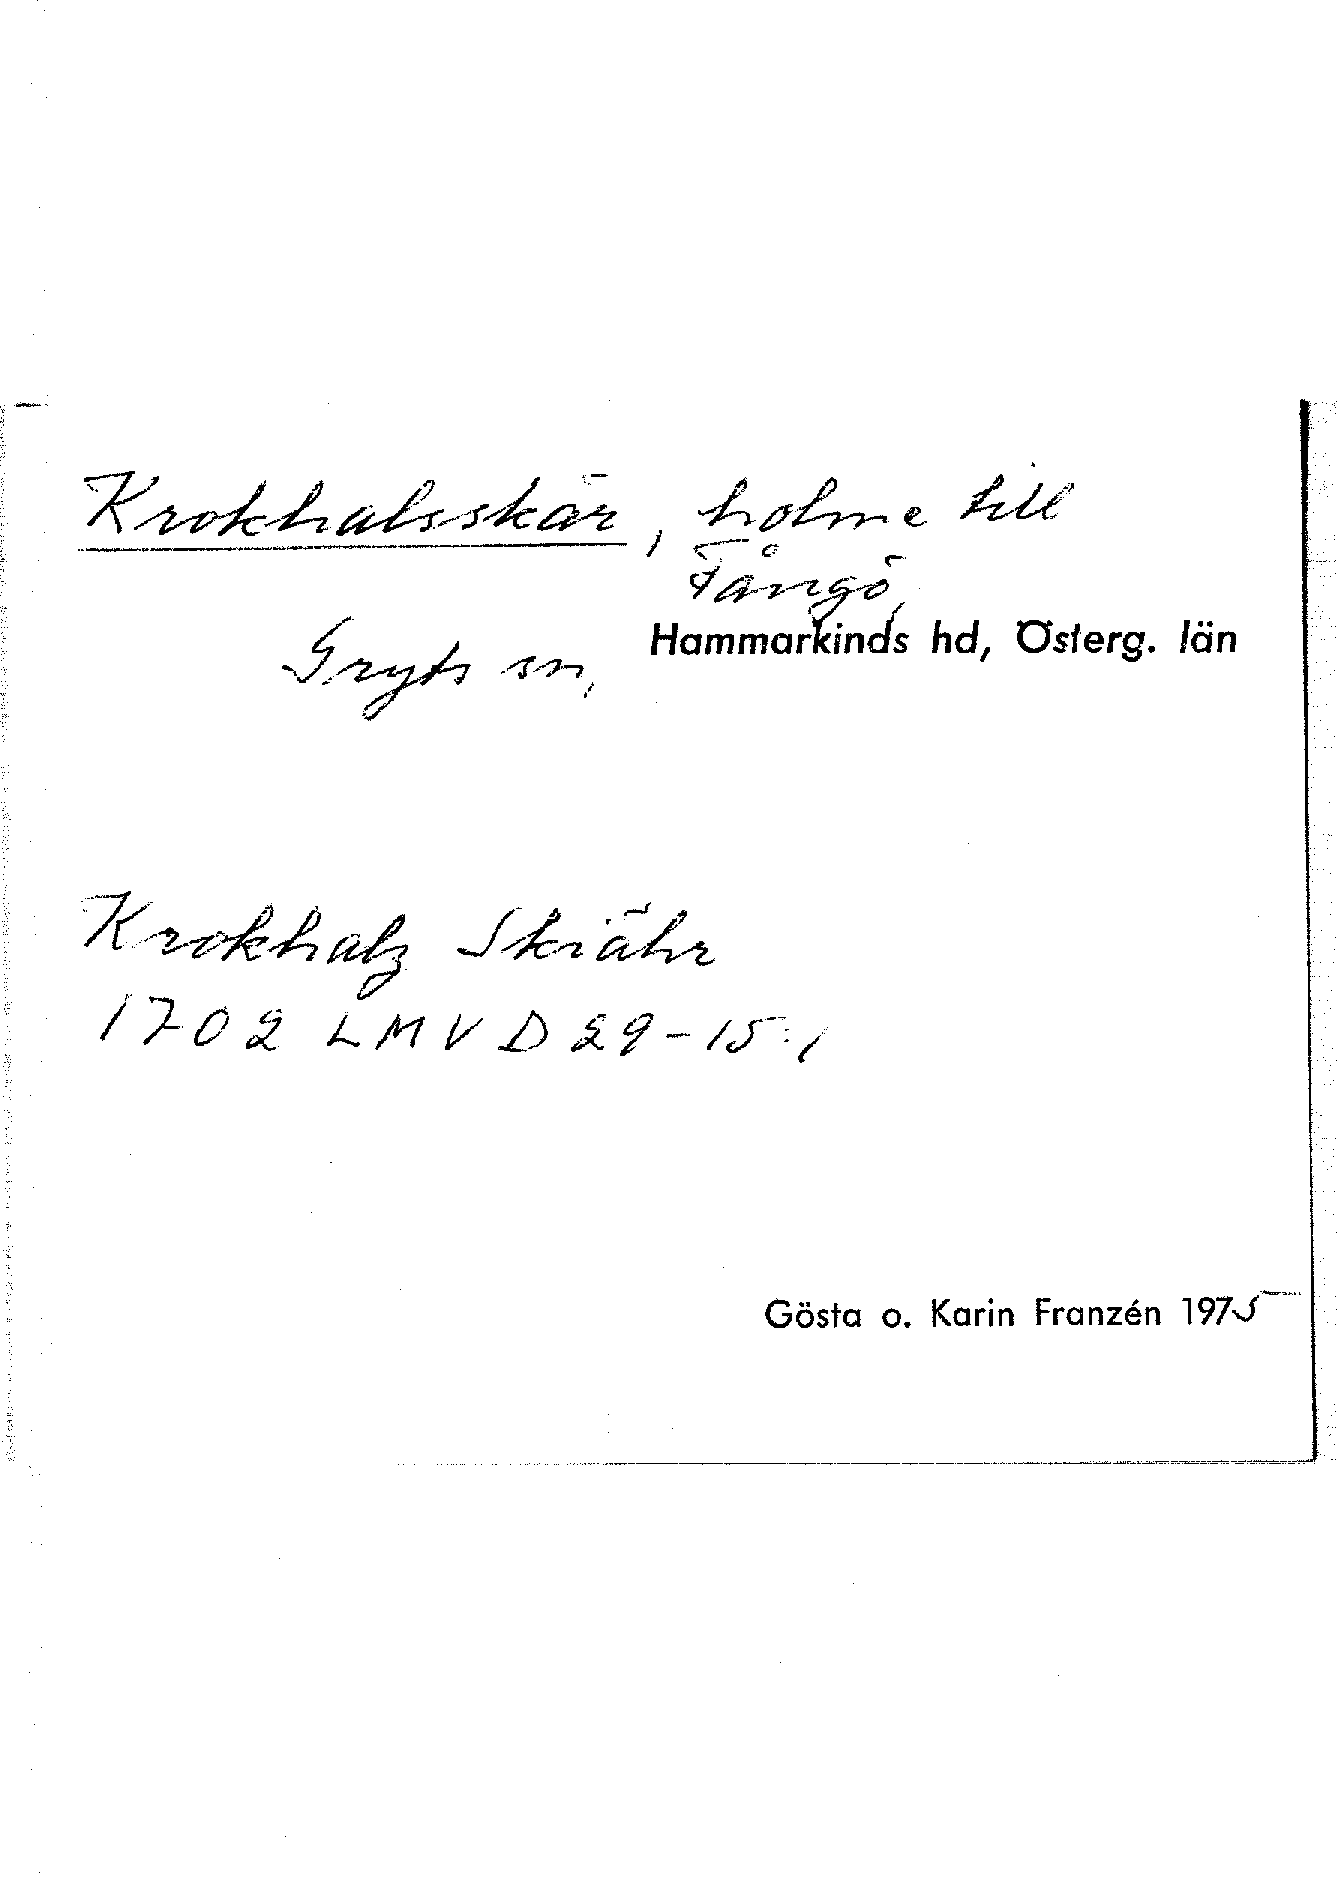 Krokhalsskär, holme till
Fångö,
Gryts sn, Hammarkinds hd, Österg. län
Krokhalz Skiähr
1702 LMV D 29-15:1
Gösta o. Karin Franzén 1975